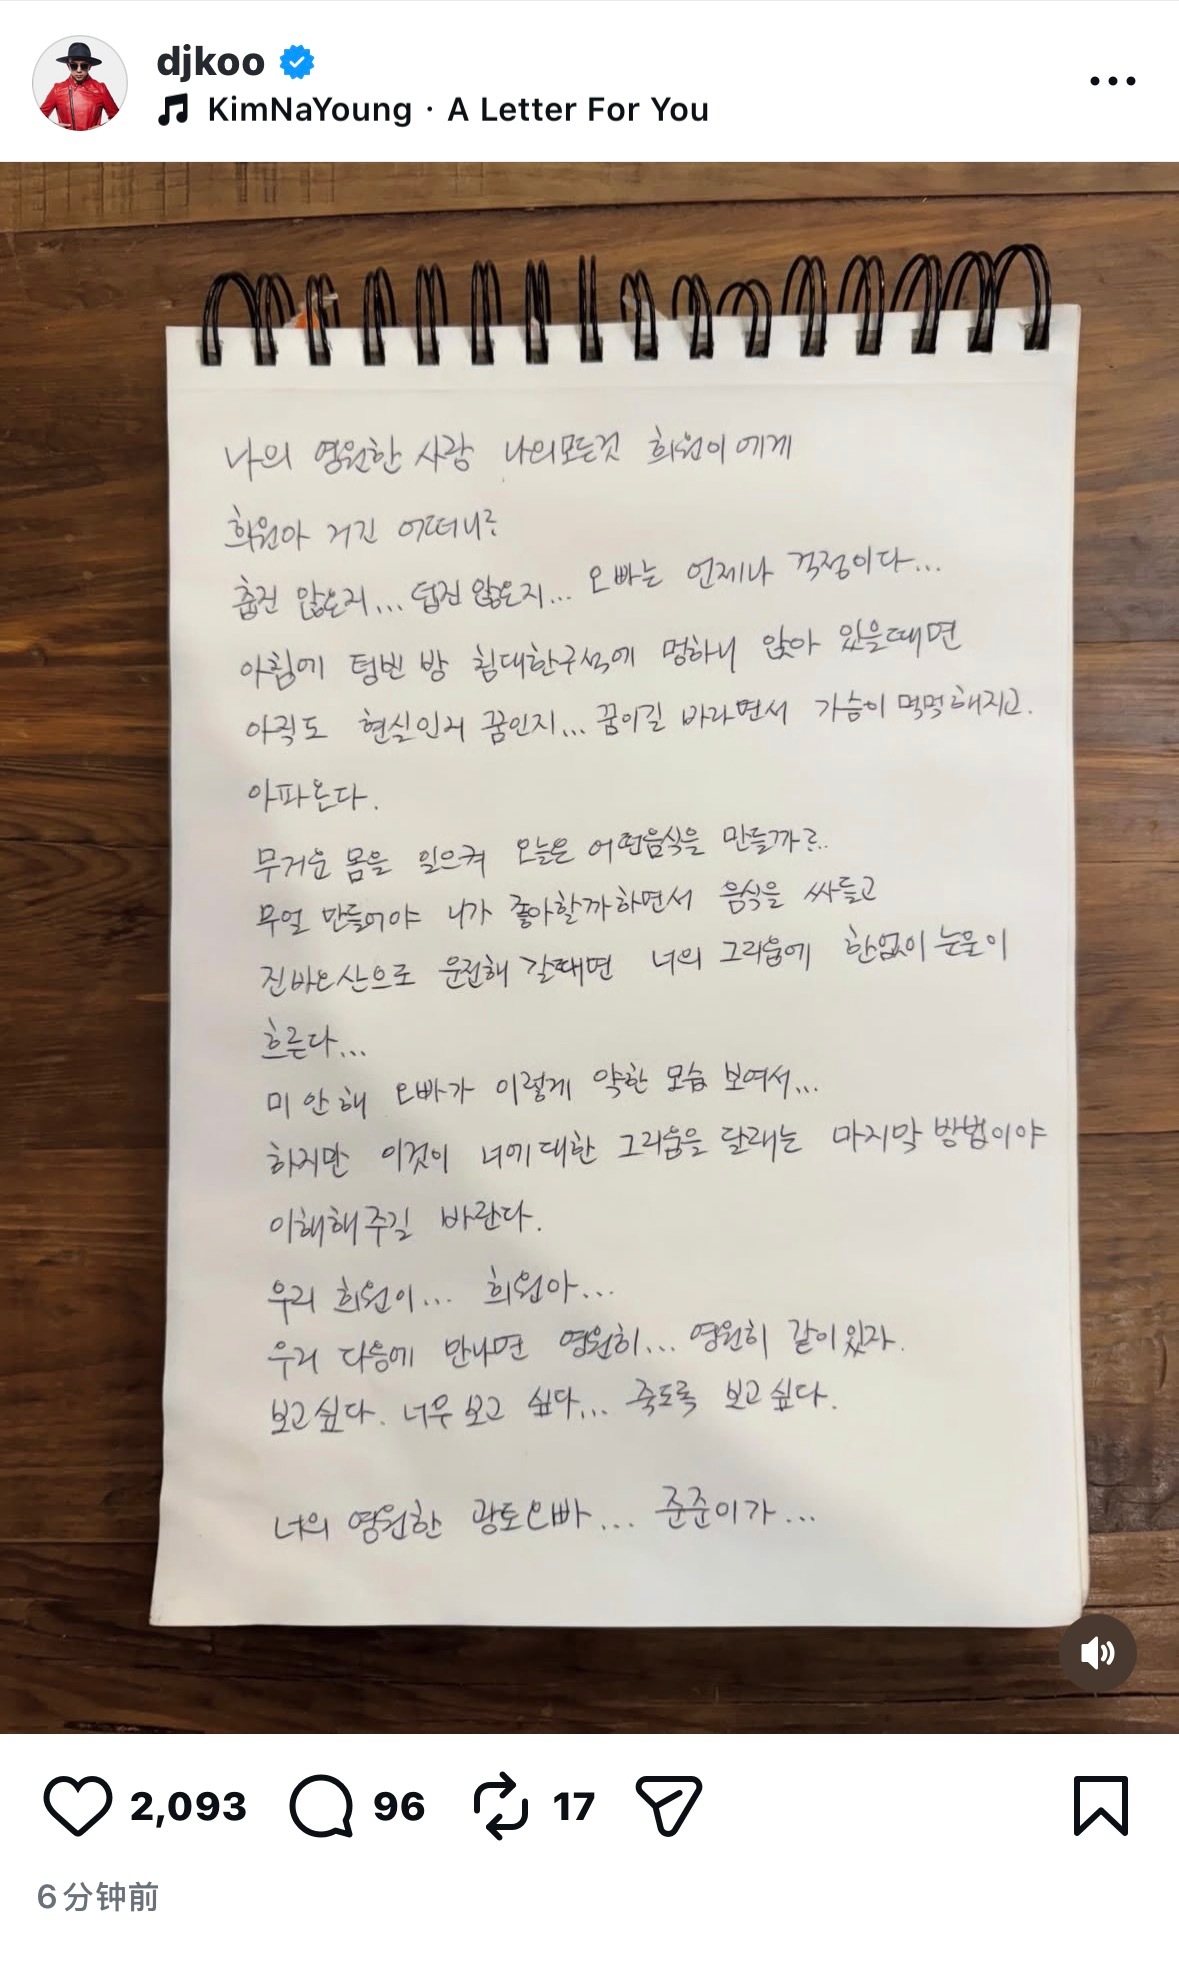 djkoo
KimNaYoung · A Letter For You
나의 영원한 사랑 나의모든것 희원이에게
희원아 거긴 어떠니?
춥진 않은지... 덥진 않은지... 오빠는 언제나 걱정이다...
아침에 텅빈 방 침대한구석에 멍하니 앉아 있을때면
아직도 현실인지 꿈인지... 꿈이길 바라면서 가슴이 먹먹해지고.
아파온다.
무거운 몸을 일으켜 오늘은 어떤음식을 만들까?..
무얼 만들어야 니가 좋아할까하면서 음식을 싸들고
진바오산으로 운전해 갈때면 너의 그리움에 한없이 눈물이
흐른다...
미안해 오빠가 이렇게 약한 모습 보여서...
하지만 이것이 너에대한 그리움을 달래는 마지막 방법이야
이해해주길 바란다.
우리 희원이... 희원아...
우리 다음에 만나면 영원히... 영원히 같이있자.
보고싶다. 너무 보고 싶다... 죽도록 보고싶다.
너의 영원한 광토오빠... 준준이가...
2,093
96
17
6分钟前